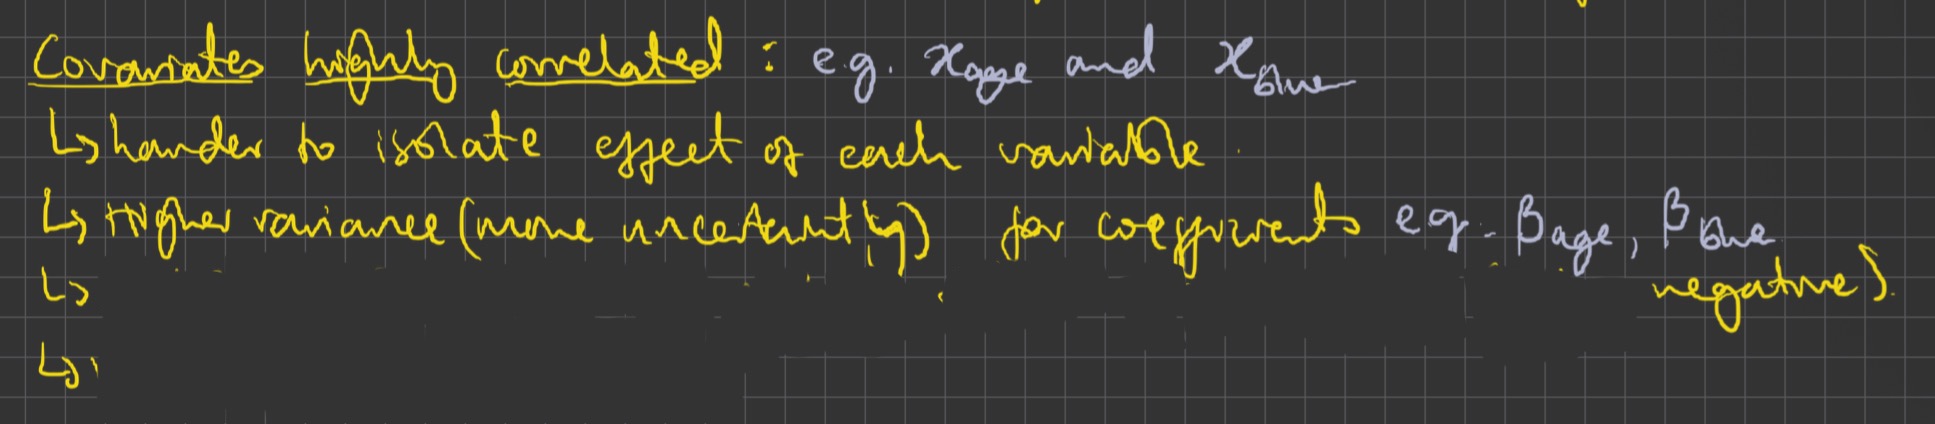 Covariates highly correlated : e.g. xage and xBlue
↳ harder to isolate effect of each variable.
↳ Higher variance (more uncertainty) for coefficients eg. βage, βBlue
↳ negative).
↳